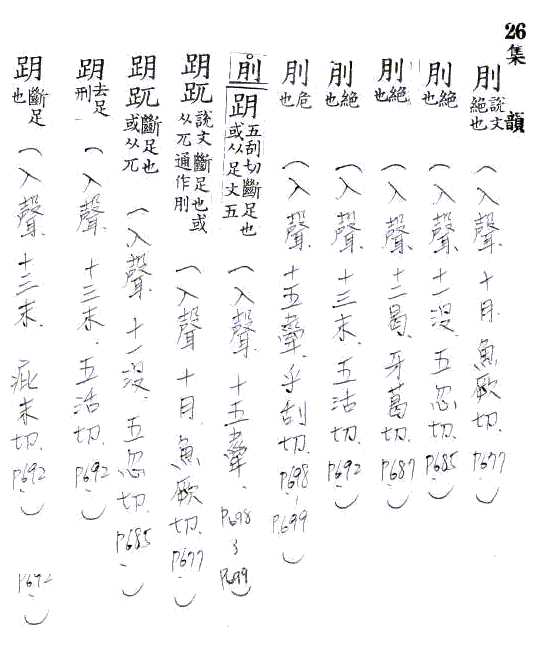 26集韻
刖說文絕也（入聲.十月.魚厥切.P.677）
刖絕也（入聲.十一沒.五忽切.P.685）
刖絕也（入聲.十二曷.牙葛切.P.687）
刖絕也（入聲.十三末.五活切.P.692）
刖危也（入聲.十五舝.乎刮切.P.698-P.699）
刖跀五刮切斷足也或从足文五（入聲.十五舝.P.698~P.699）
跀䟢說文斷足也或从兀通作刖（入聲十月.魚厥切.P.677）
跀䟢斷足也或从兀（入聲.十一沒.五忽切.P.685）
跀去足刑（入聲.十三末.五活切.P.692）
跀斷足也（入聲.十三末.P.692）P.692）